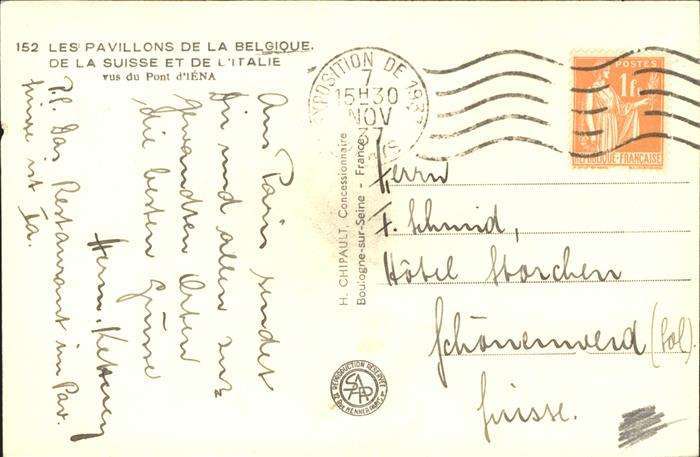 152 LES PAVILLONS DE LA BELGIQUE.
DE LA SUISSE ET DE L'ITALIE
vus du Pont d'IÉNA
EXPOSITION DE 1937
7
15H30
NOV
37
PARIS
POSTES
1F
REPUBLIQUE-FRANÇAISE
Aus Paris sendet
Dir und allen
die besten Grüsse
P.S. Das Restaurant im Pav.
suisse ist Ia.
H. CHIPAULT, Concessionnaire
Boulogne-sur-Seine - France
Herrn
F. Schmid,
Hôtel Storchen
Schönenwerd (Sol.)
Suisse.
REPRODUCTION RESERVEE
SAPP